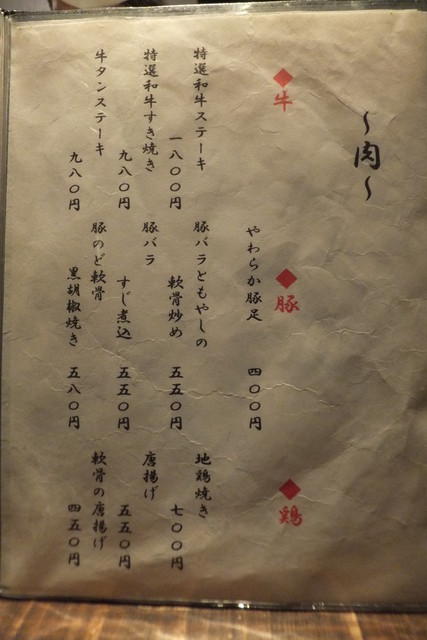 ～肉～
◆牛
特選和牛ステーキ
一八〇〇円
特選和牛すき焼き
九八〇円
牛タンステーキ
九八〇円
◆豚
やわらか豚足
四〇〇円
豚バラともやしの
軟骨炒め
五五〇円
豚バラ
すじ煮込
五五〇円
豚のど軟骨
黒胡椒焼き
五八〇円
◆鶏
地鶏焼き
七〇〇円
唐揚げ
五五〇円
軟骨の唐揚げ
四五〇円